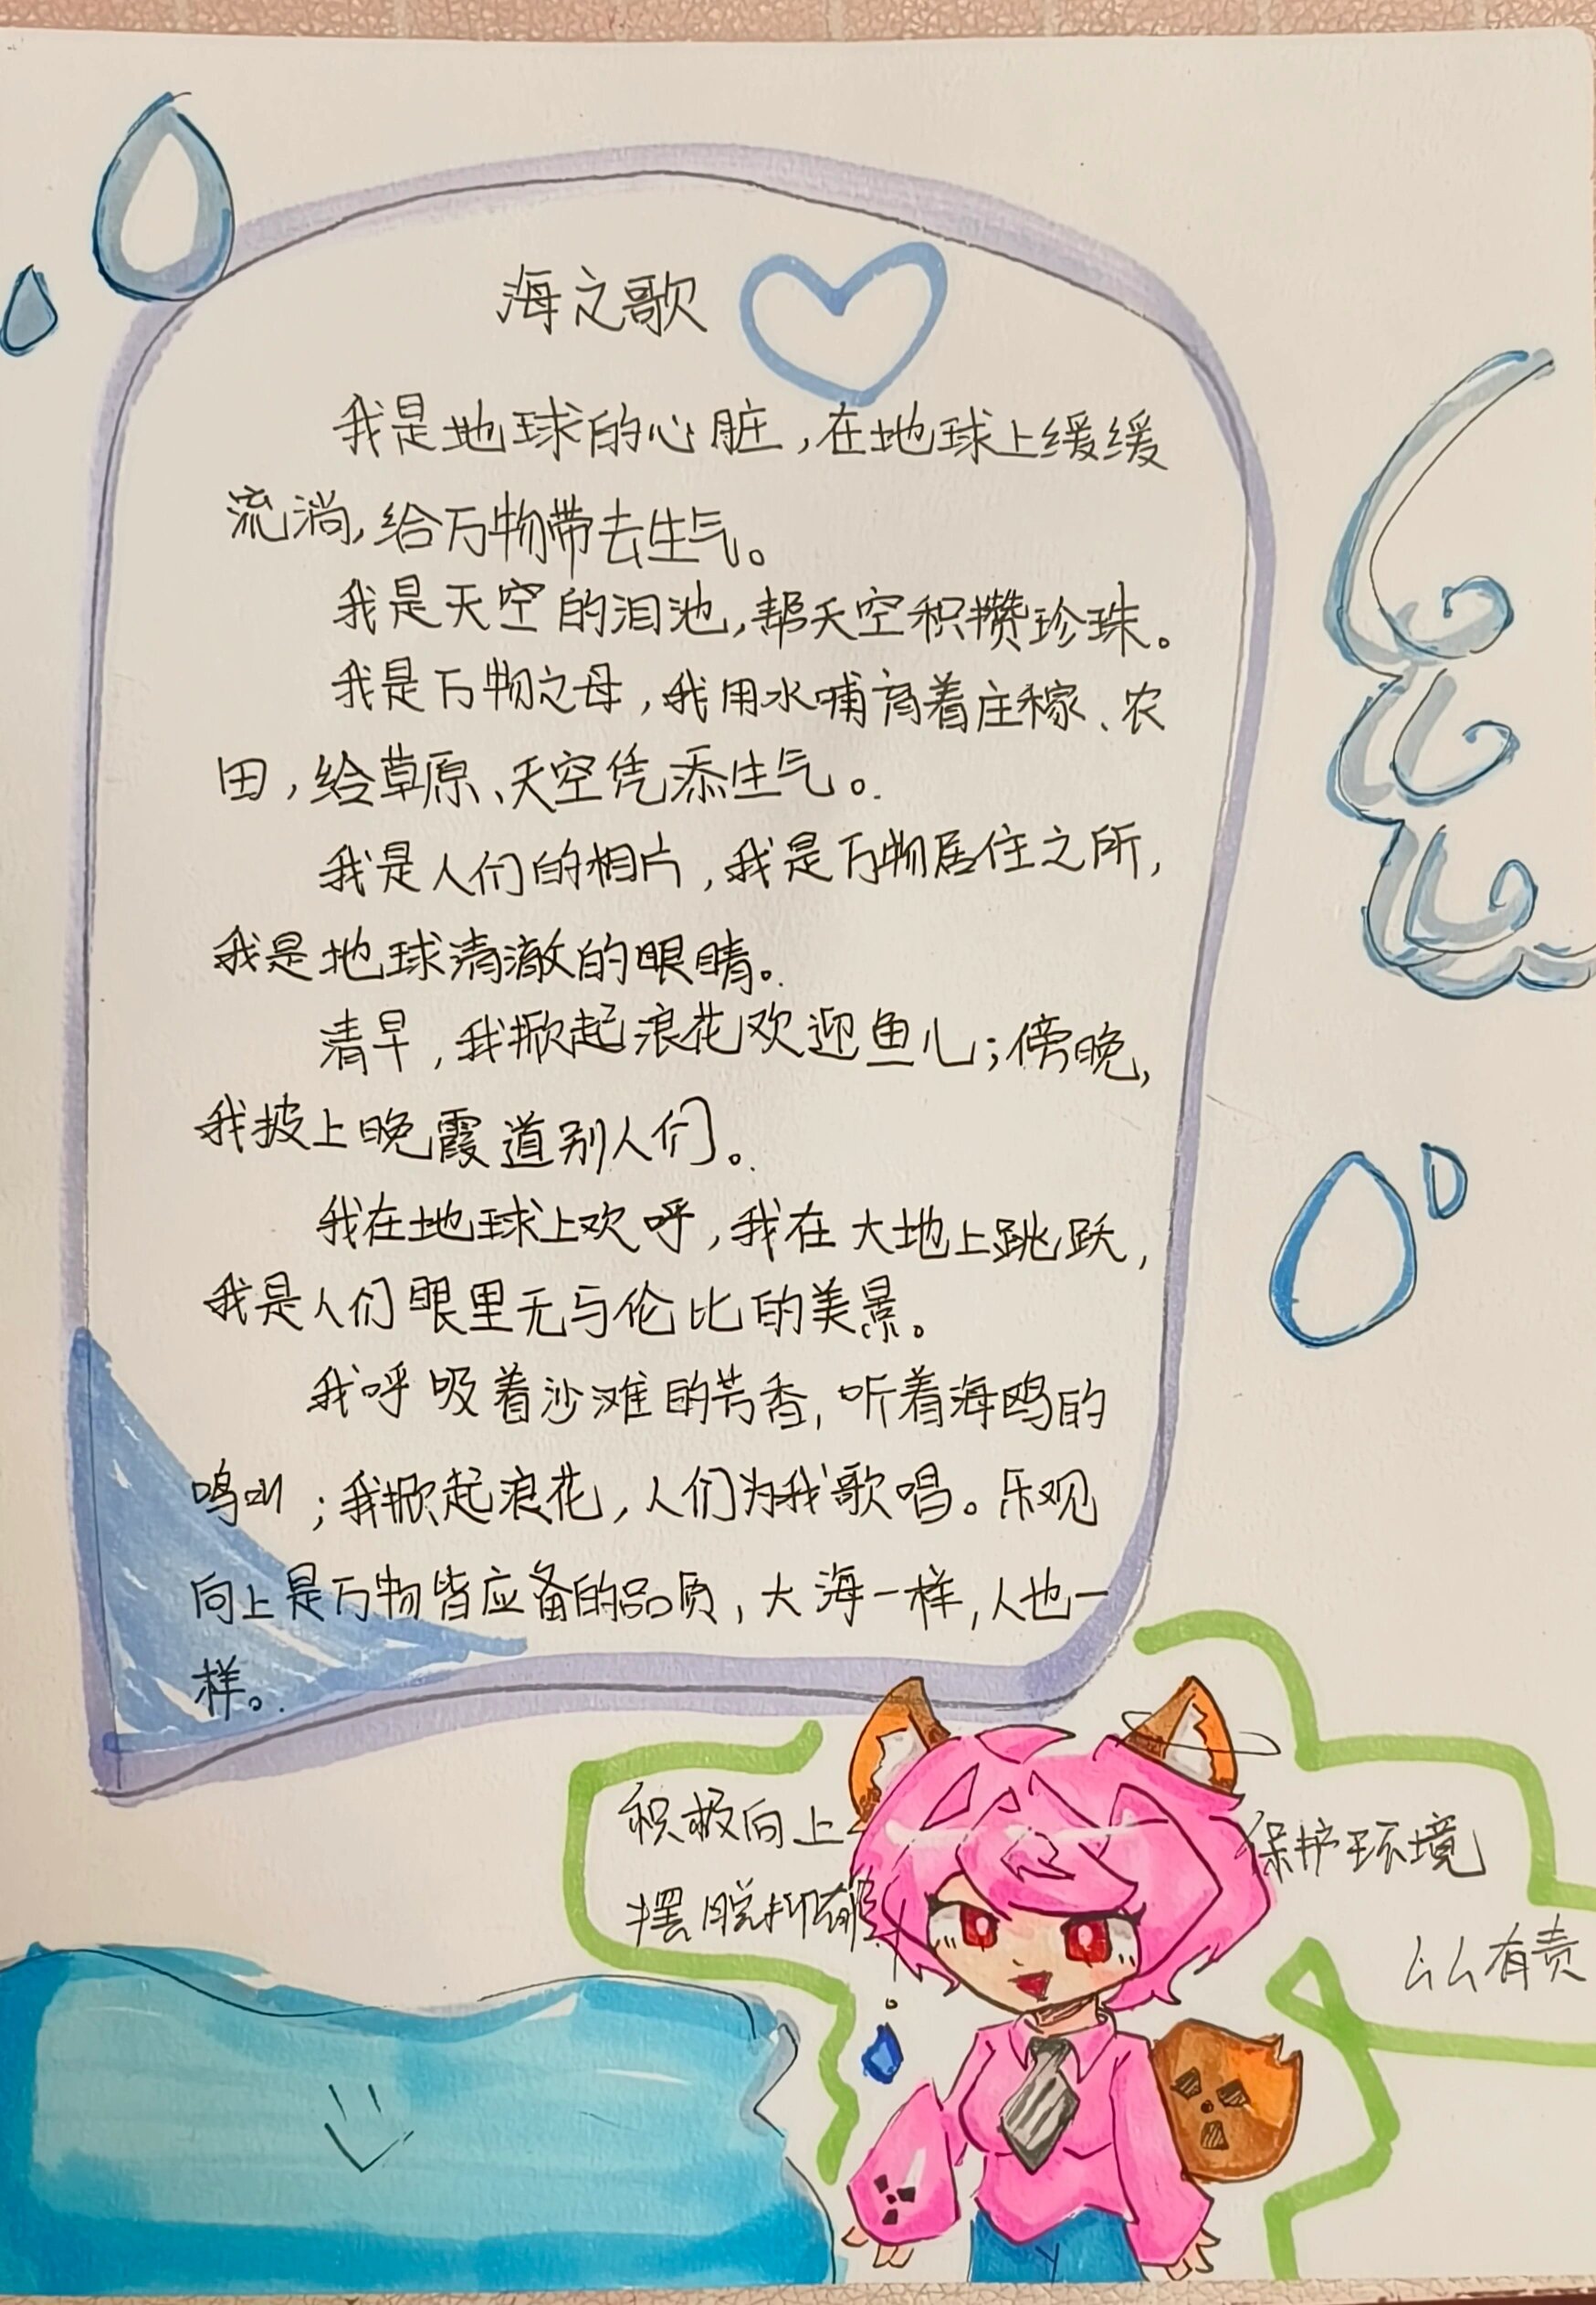 海之歌
我是地球的心脏,在地球上缓缓
流淌,给万物带去生气。
我是天空的泪池,帮天空积攒珍珠。
我是万物之母,我用水哺育着庄稼、农
田,给草原、天空凭添生气。
我是人们的相片,我是万物居住之所,
我是地球清澈的眼睛。
清早,我掀起浪花欢迎鱼儿;傍晚,
我披上晚霞道别人们。
我在地球上欢呼,我在大地上跳跃,
我是人们眼里无与伦比的美景。
我呼吸着沙滩的芳香,听着海鸥的
鸣叫;我掀起浪花,人们为我歌唱。乐观
向上是万物皆应备的品质,大海一样,人也一
样。
积极向上
摆脱抑郁
保护环境
人人有责